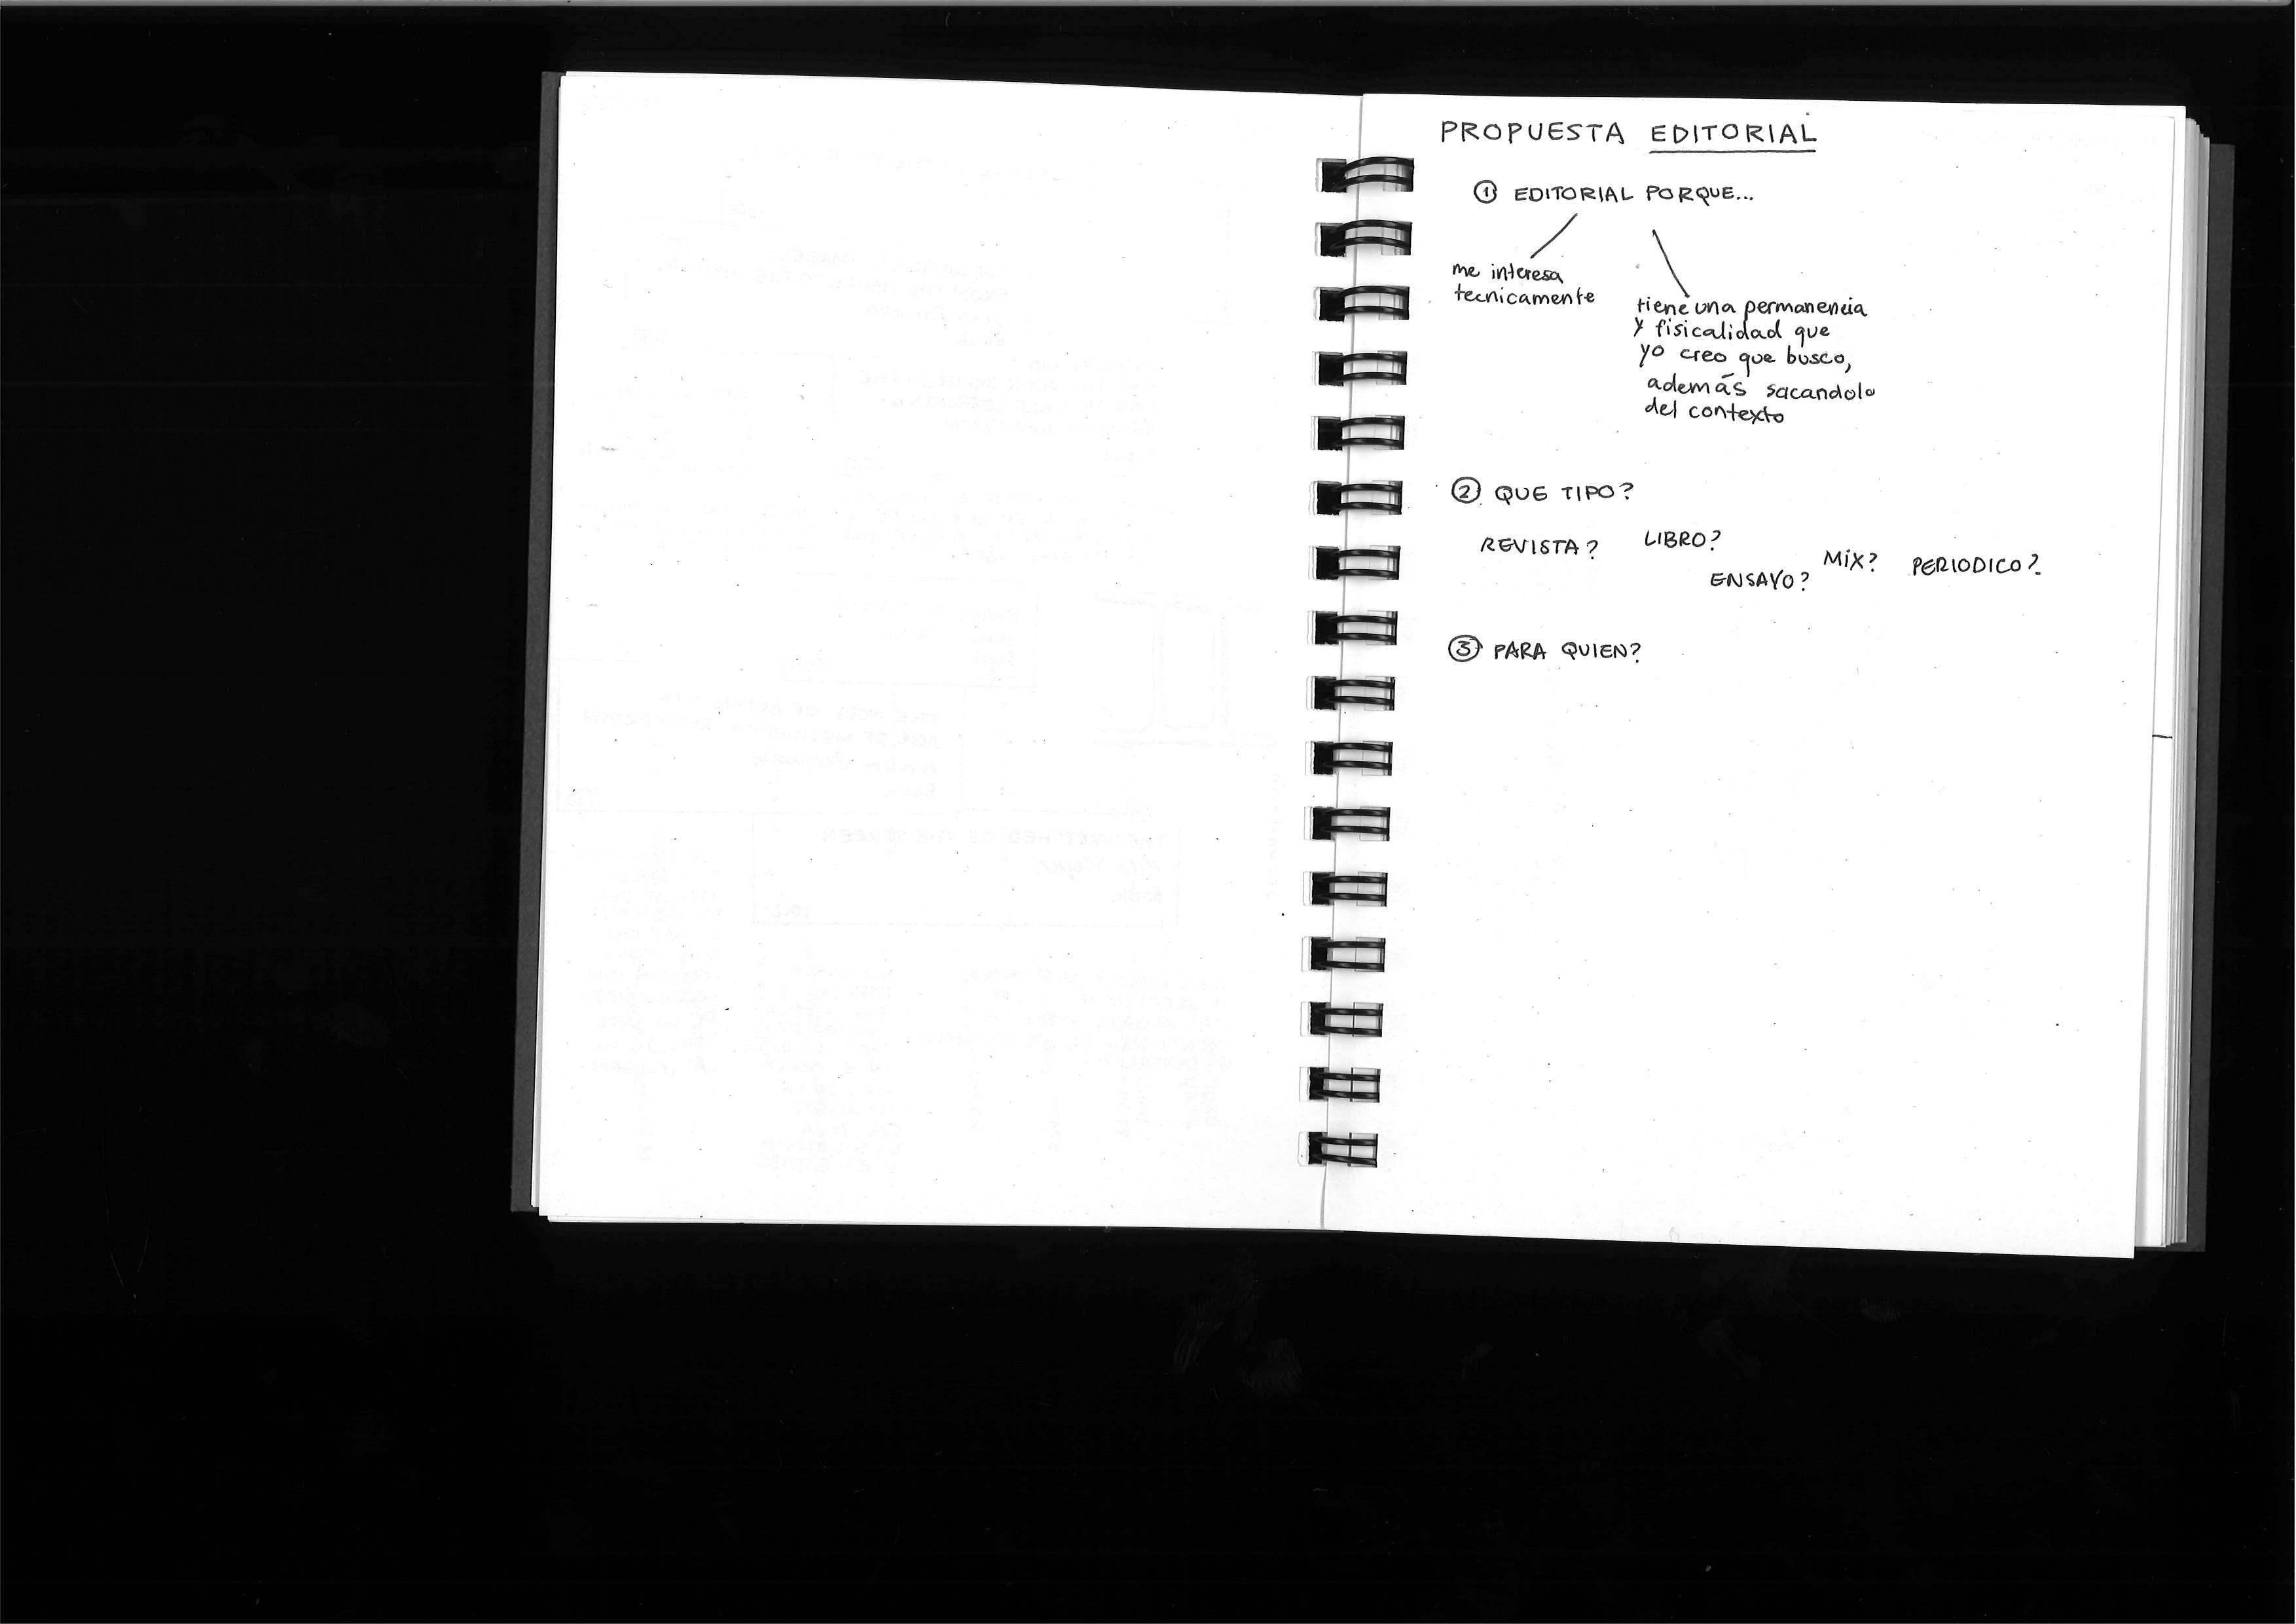 PROPUESTA EDITORIAL
① EDITORIAL PORQUE...
me interesa
tecnicamente
tiene una permanencia
y fisicalidad que
yo creo que busco,
además sacandolo
del contexto
② QUE TIPO?
REVISTA? LIBRO?
ENSAYO? MIX? PERIODICO?
③ PARA QUIEN?